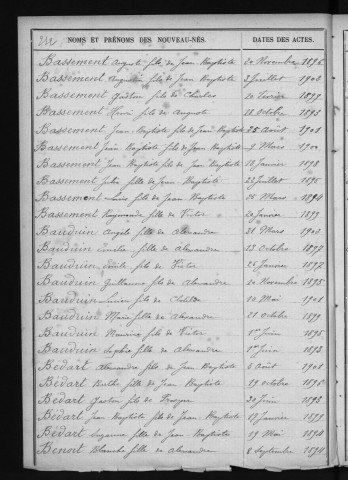 NOMS ET PRÉNOMS DES NOUVEAU-NÉS. DATES DES ACTES.
Bassement Auguste fils de Jean Baptiste 20 Novembre 1896
Bassement Augustin fils de Jean Baptiste 3 Juillet 1902
Bassement Gaston fils de Charles 10 Février 1899
Bassement Henri fils de Auguste 18 Octobre 1895
Bassement Jean Baptiste fils de Jean Baptiste 25 Août 1901
Bassement Jean Baptiste fils de Jean Baptiste Mars 1900
Bassement Jean Baptiste fils de Jean Baptiste 18 Janvier 1898
Bassement Julie fille de Jean Baptiste 22 Juillet 1895
Bassement Louis fils de Jean Baptiste 26 Mars 1894
Bassement Raymonde fille de Victor 20 Janvier 1899
Bauduin Angèle fille de Alexandre 31 Mars 1902
Bauduin fille de Alexandre 23 Octobre 1897
Bauduin fils de Victor 26 Janvier 1892
Bauduin Guillaume fils de Alexandre 20 Novembre 1895
Bauduin Lucien fils de 10 Mai 1901
Bauduin Maria fille de Alexandre 21 Octobre 1899
Bauduin Maurice fils de Victor 1er Juin 1895
Bauduin Sophie fille de Alexandre 1er Juin 1893
Bédart Alexandre fils de Jean Baptiste 6 Août 1901
Bédart Berthe fille de Jean Baptiste 19 Octobre 1896
Bédart Gaston fils de 30 Juin 1893
Bédart Jean Baptiste fils de Jean Baptiste 17 Janvier 1899
Bédart Suzanne fille de Jean Baptiste 19 Mai 1894
Benoit Blanche fille de Alexandre 8 Septembre 1894